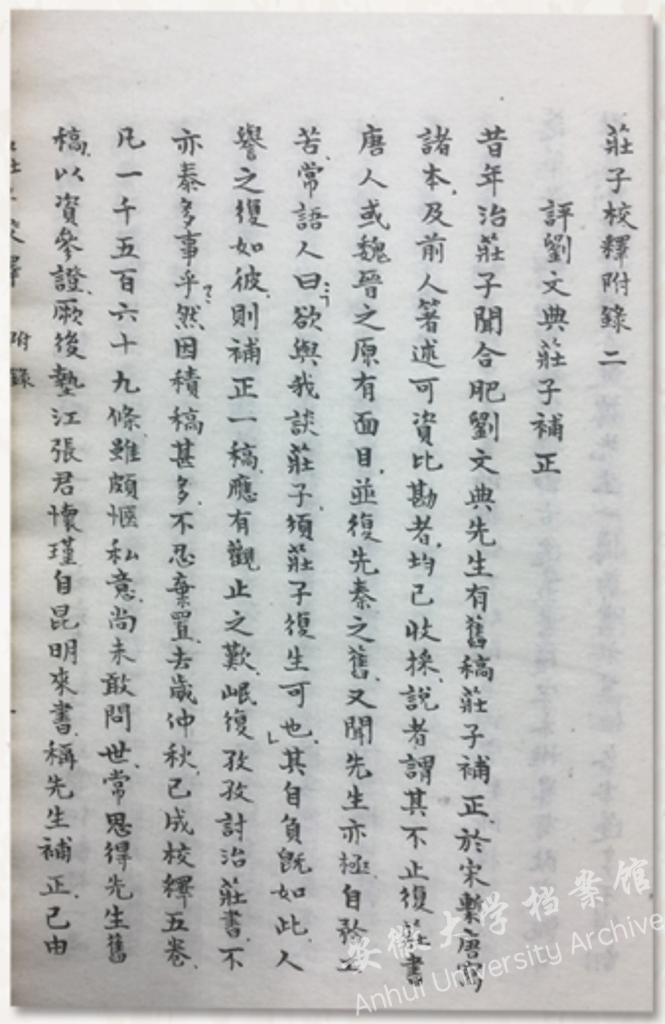 莊子校釋附錄二
評劉文典莊子補正
昔年治莊子聞合肥劉文典先生有舊稿莊子補正、於宋槧唐寫
諸本、及前人著述可資比勘者、均已收採、說者謂其不止復莊書
唐人或魏晉之原有面目、並復先秦之舊、又聞先生亦極自矜
苦、常語人曰、「欲與我談莊子、須莊子復生可也、」其自負既如此、人
譽之復如彼、則補正一稿、應有觀止之歎、岷復孜孜討治莊書、不
亦泰多事乎？然因積稿甚多、不忍棄置、去歲仲秋、已成校釋五卷、
凡一千五百六十九條、雖頗愜私意、尚未敢問世、常思得先生舊
稿、以資參證、厥後墊江張君懷瑾自昆明來書、稱先生補正、已由
莊子校釋 附錄
安徽大学档案馆
Anhui University Archive